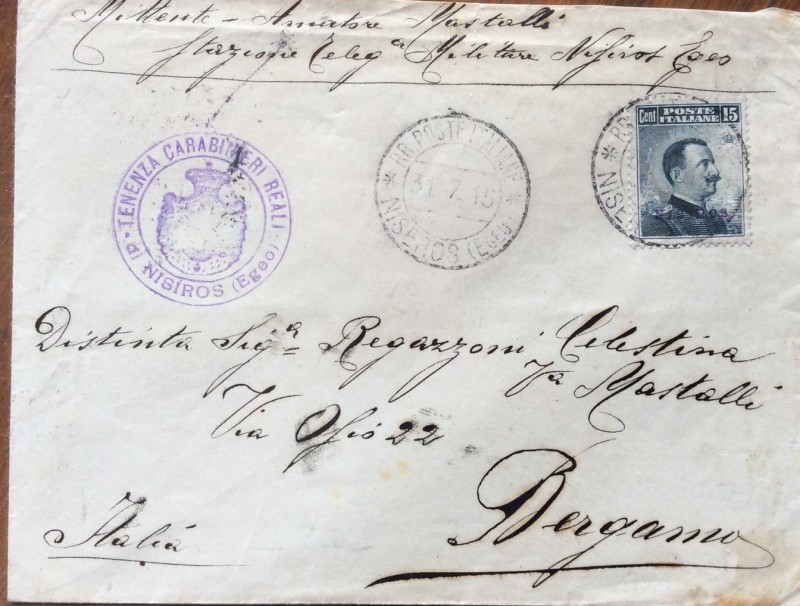 Mittente - Amatore Mastalli
Stazione Teleg.ca Militare Nisiros Egeo
TENENZA CARABINIERI REALI
NISIROS (Egeo)
RR. POSTE ITALIANE
31.7.15
NISEROS (EGEO)
Cent POSTE ITALIANE 15
RR
NISE
Distinta Sig.a Regazzoni Celestina
Va Mastalli
Via Osio 22
Bergamo
Italiá